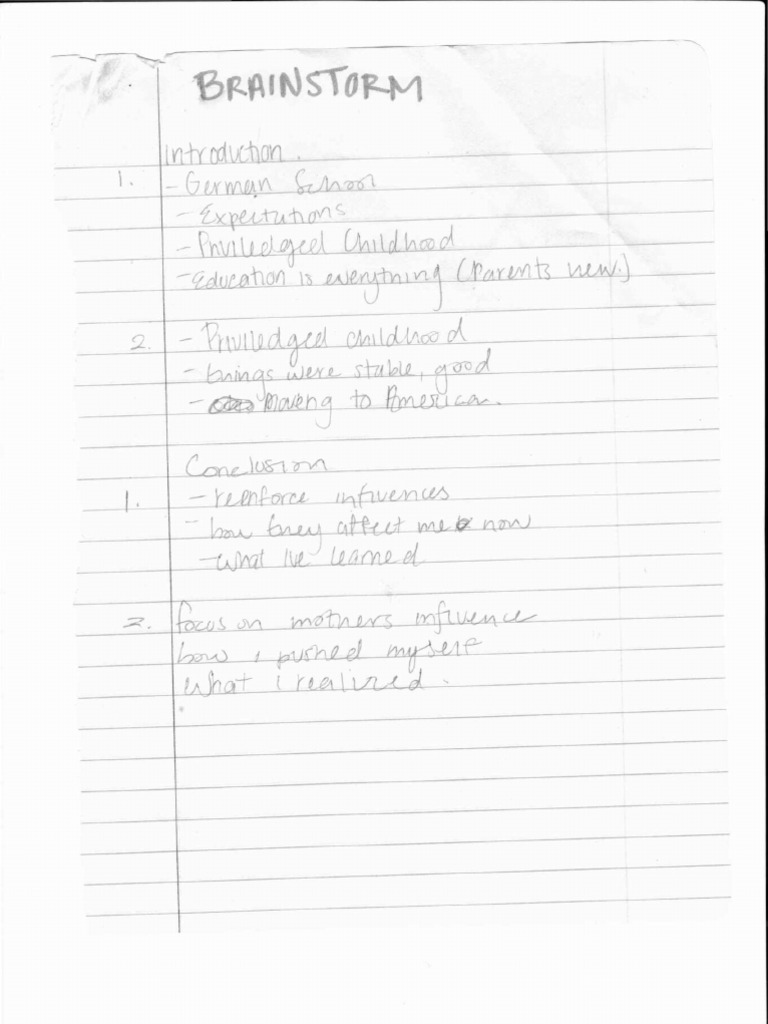 BRAINSTORM
Introduction.
1. - German School
- Expectations
- Priviledged Childhood
- Education is everything (Parents view.)
2. - Priviledged childhood
- things were stable, good
- Moving to American.
Conclusion
1. - reenforce influences
- how they affect me now
- what I've learned
2. focus on mothers influence
how i pushed myself
what i realized.